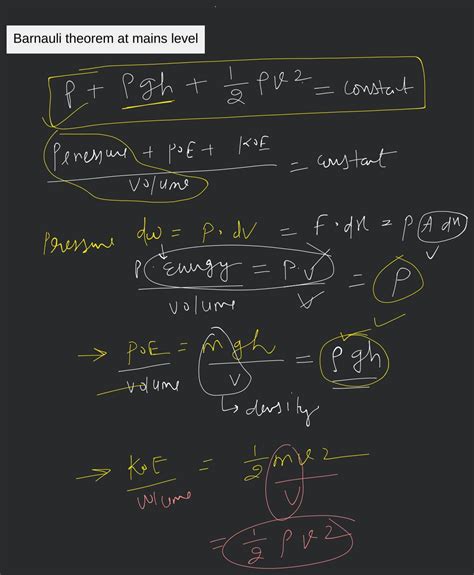 Barnauli theorem at mains level
P + ρgh + 1/2 ρv2 = constant
Penessure + P.E + K.E / Volume = constant
Pressure dw = P. dV = F. dx = P A dx
P. Energy / Volume = P.V / V = P
→ P.E / volume = mgh / V = ρgh
↳ density
→ K.E / volume = 1/2 mv2 / V
= 1/2 ρv2